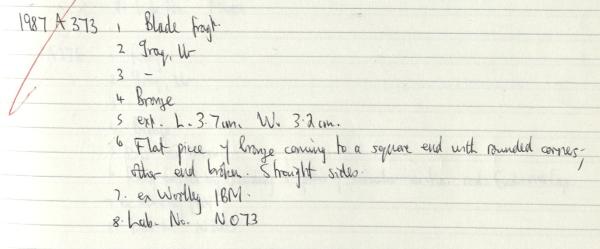 1987 A 373 1 Blade fragt.
2 Iraq, Ur
3 -
4 Bronze
5 ext. L. 3.7cm. W. 3.2cm.
6 Flat piece of bronze coming to a square end with rounded corners,
other end broken. Straight sides.
7. ex Woolley IBM.
8. Lab. No. N073